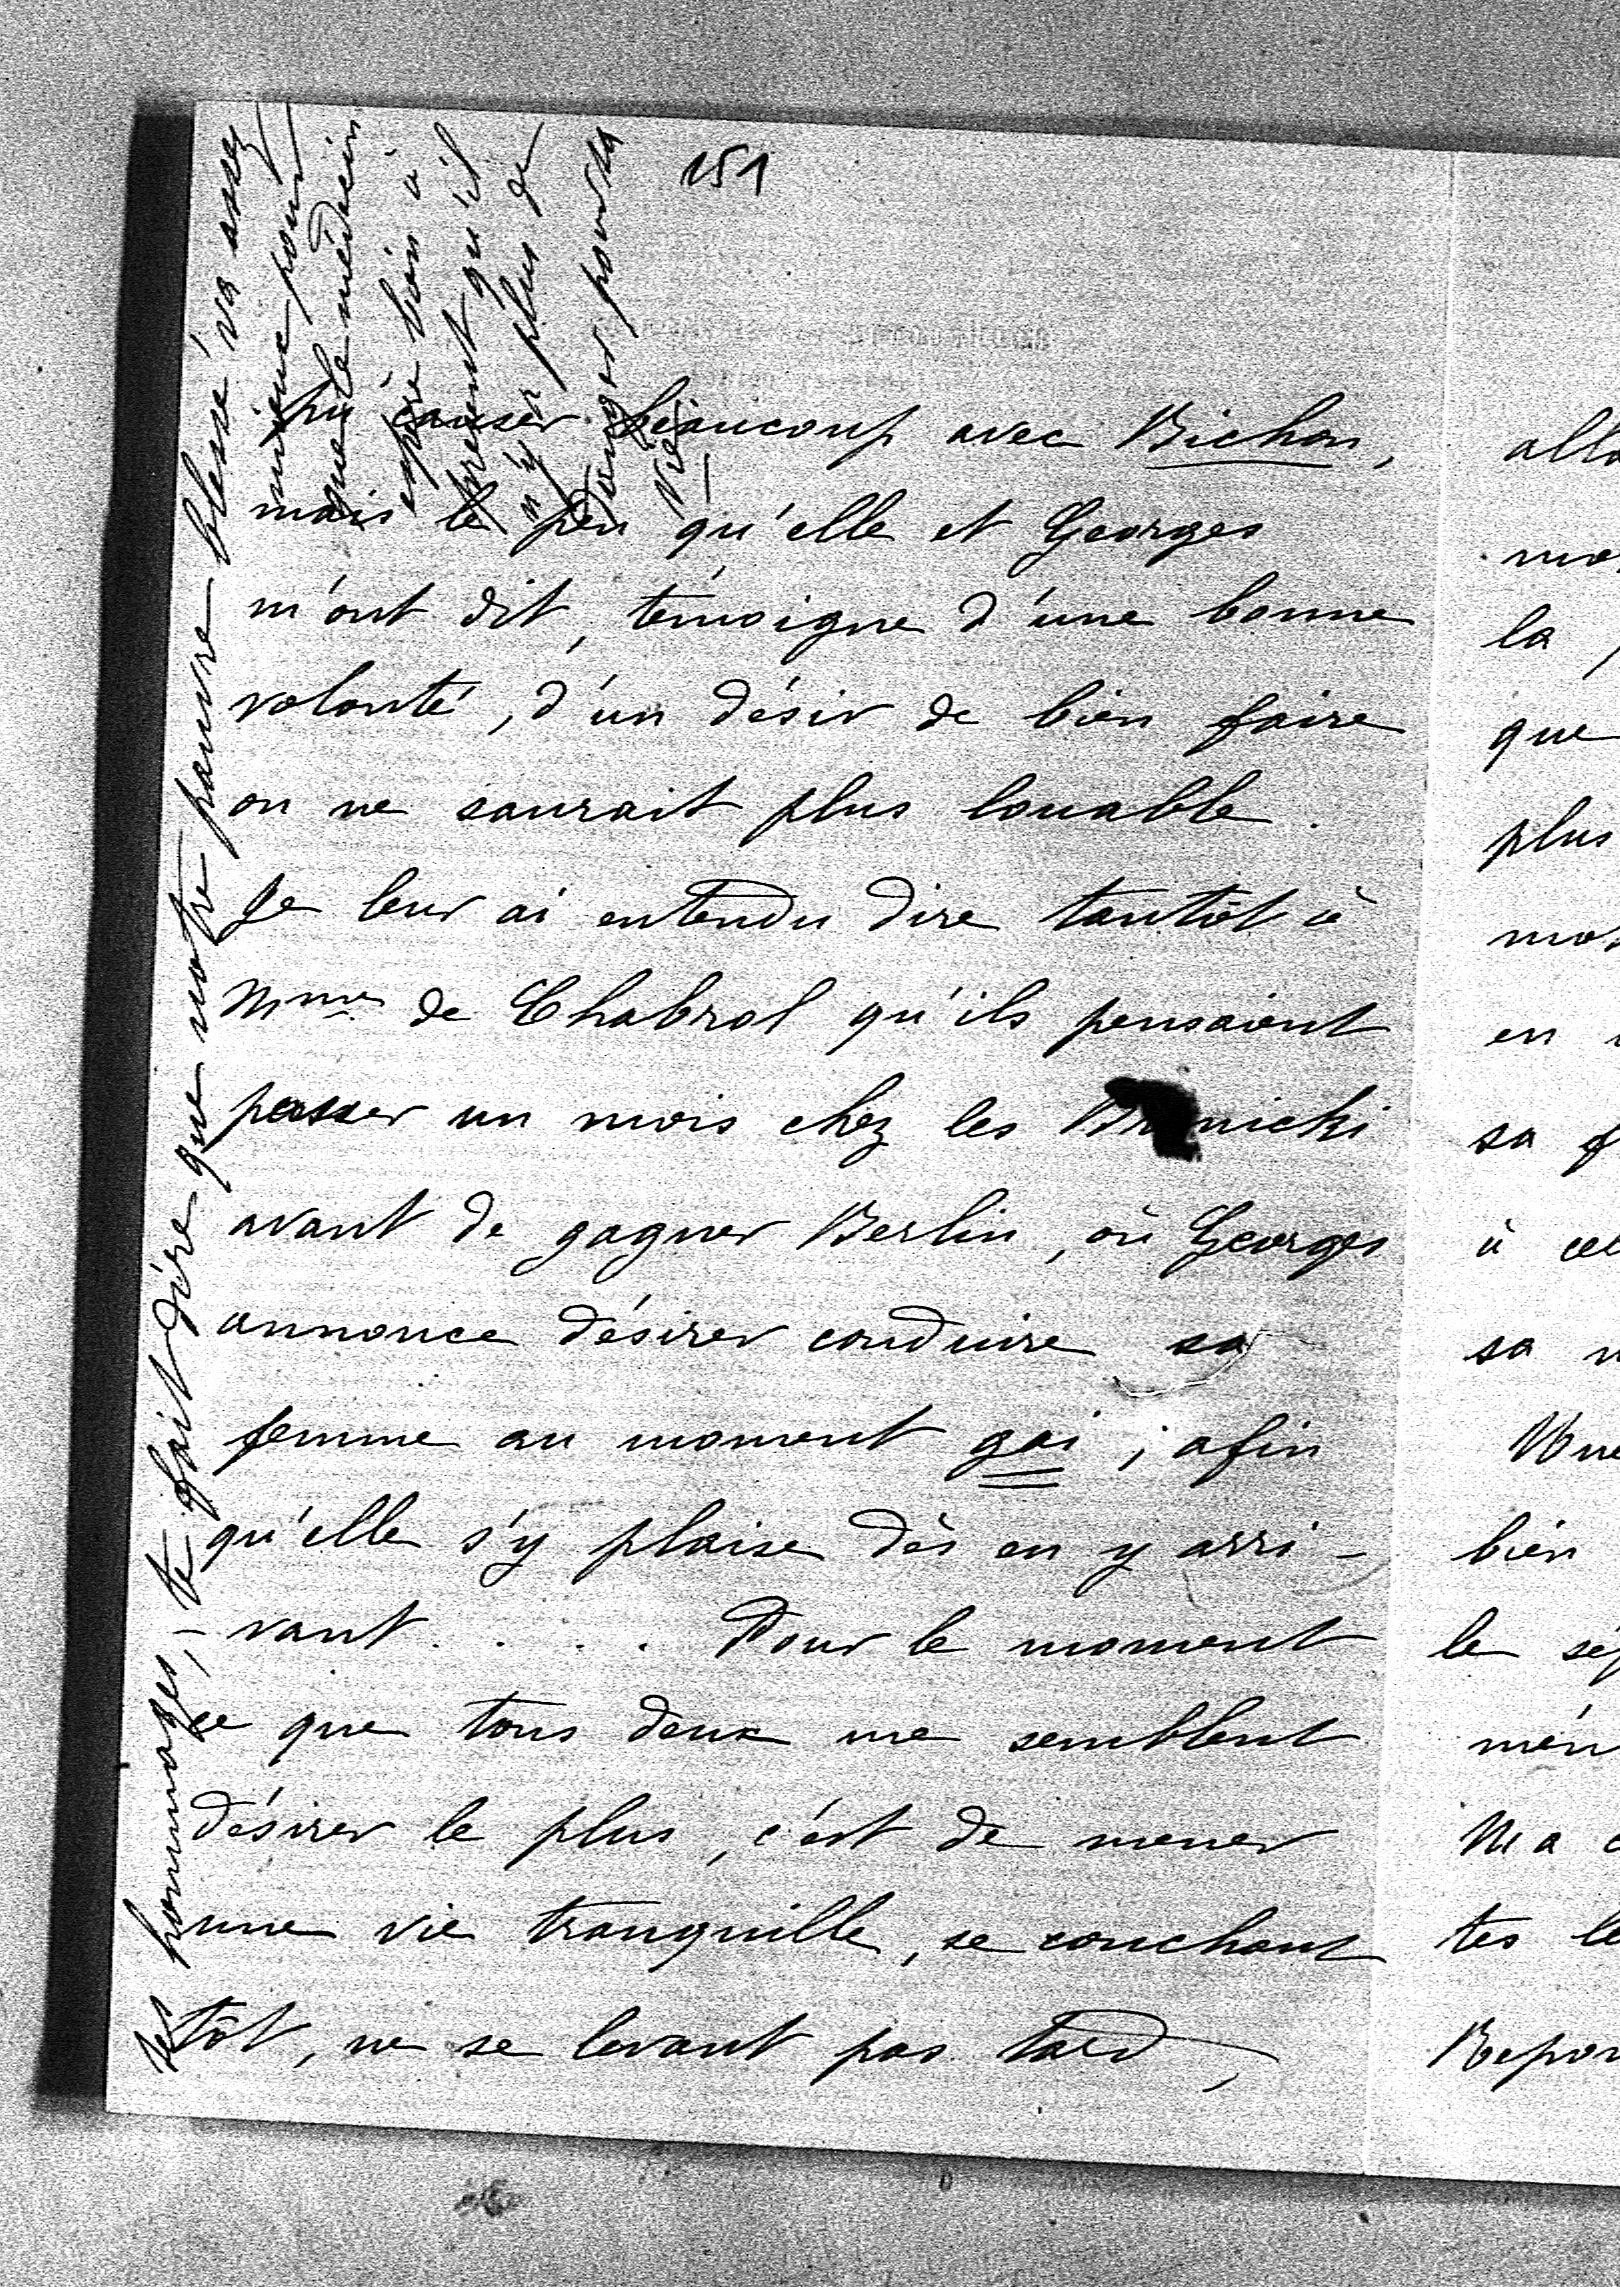 151
pu causer beaucoup avec Bichon,
mais le peu qu'elle et Georges
m'ont dit, témoigne d'une bonne
volonté, d'un désir de bien faire
on ne saurait plus louable.
Je leur ai entendu dire tantôt à
Mme de Chabrol qu'ils pensaient
passer un mois chez les
avant de gagner Berlin, où Georges
annonce désirer conduire sa
femme au moment gai, afin
qu'elle s'y plaise dès en y arri-
vant.... Pour le moment
ce que tous deux me semblent
désirer le plus, c'est de mener
une vie tranquille, se couchant
tôt, ne se levant pas tard,
ses hommages, - te fait dire que notre pauvre blessé va assez
mieux pour
que le médecin
espère bien à
présent qu'il
n'y a plus de
danger pour sa
vie
allo
mo
la
que
plus
mo
en
sa f
à ce
sa
bien
le sé
Ma
tes le